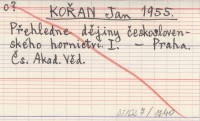 o?
KOŘAN Jan 1955.
Přehledné dějiny českosloven-
ského hornictví. I. — Praha.
Čs. Akad. Věd.